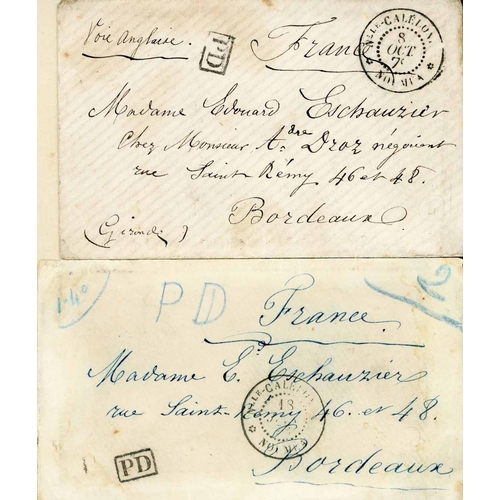 Voie Anglaise.
PD
France
Nlle-CALÉDON
8
OCT
NOUMEA
Madame Edouard Eschauzier
Chez Monsieur Adre Droz négociant
rue Saint-Rémy 46 et 48.
Bordeaux.
(Gironde)
1.40
PD
France.
Madame E. Eschauzier
Nlle-CALÉDON
18
NOUMEA
rue Saint-Rémy 46. et 48.
PD
Bordeaux